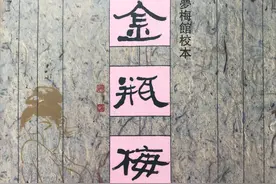 夢梅館校本
金
瓶
梅